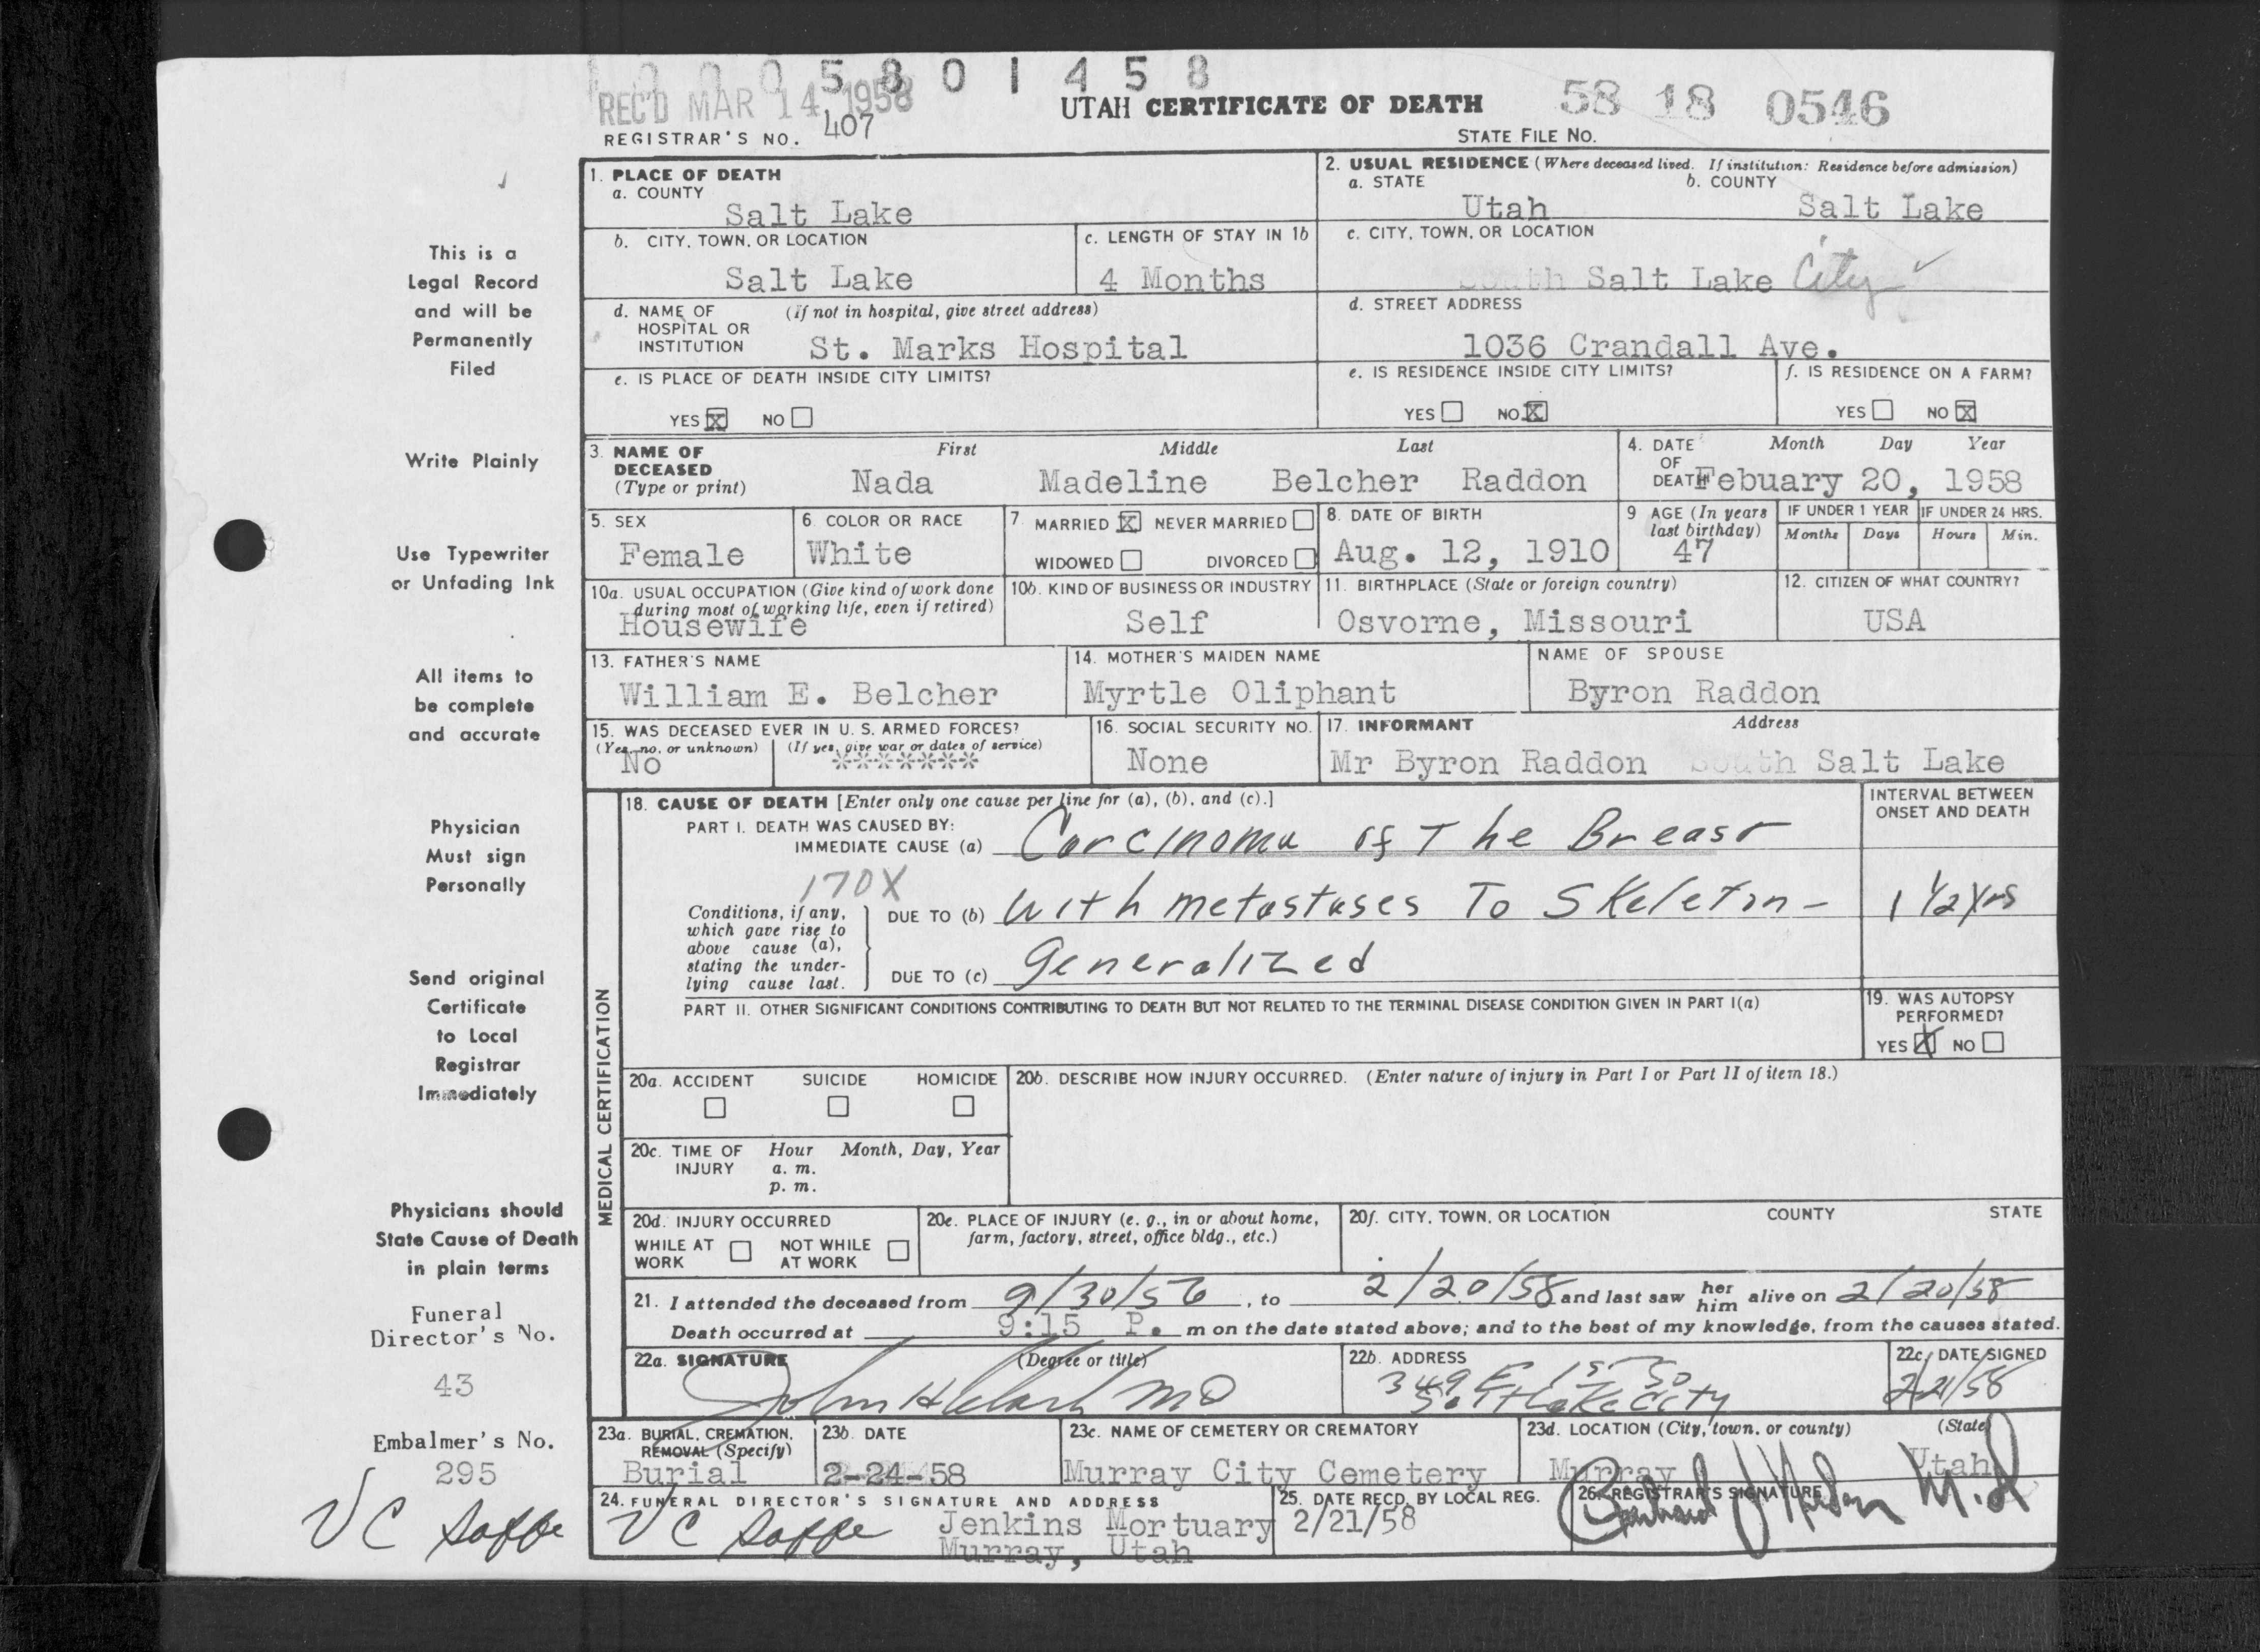 1 0 0 0 5 8 0 1 4 5 8
REC'D MAR 14 1958
UTAH CERTIFICATE OF DEATH 58 18 0546
REGISTRAR'S NO. 407 STATE FILE NO.
This is a
Legal Record
and will be
Permanently
Filed
Write Plainly
Use Typewriter
or Unfading Ink
All items to
be complete
and accurate
Physician
Must sign
Personally
Send original
Certificate
to Local
Registrar
Immediately
Physicians should
State Cause of Death
in plain terms
Funeral
Director's No.
43
Embalmer's No.
295
V C
1. PLACE OF DEATH
a. COUNTY
Salt Lake
b. CITY, TOWN, OR LOCATION
Salt Lake
c. LENGTH OF STAY IN 1b
4 Months
d. NAME OF (If not in hospital, give street address)
HOSPITAL OR
INSTITUTION St. Marks Hospital
e. IS PLACE OF DEATH INSIDE CITY LIMITS?
YES X NO
2. USUAL RESIDENCE (Where deceased lived. If institution: Residence before admission)
a. STATE b. COUNTY
Utah Salt Lake
c. CITY, TOWN, OR LOCATION
South Salt Lake City
d. STREET ADDRESS
1036 Crandall Ave.
e. IS RESIDENCE INSIDE CITY LIMITS?
YES NO X
f. IS RESIDENCE ON A FARM?
YES NO X
3. NAME OF First Middle Last
DECEASED
(Type or print) Nada Madeline Belcher Raddon
4. DATE Month Day Year
OF
DEATH Febuary 20, 1958
5. SEX
Female
6. COLOR OR RACE
White
7. MARRIED X NEVER MARRIED
WIDOWED DIVORCED
8. DATE OF BIRTH
Aug. 12, 1910
9 AGE (In years
last birthday)
47
IF UNDER 1 YEAR IF UNDER 24 HRS.
Months Days Hours Min.
10a. USUAL OCCUPATION (Give kind of work done
during most of working life, even if retired)
Housewife
10b. KIND OF BUSINESS OR INDUSTRY
Self
11. BIRTHPLACE (State or foreign country)
Osvorne, Missouri
12. CITIZEN OF WHAT COUNTRY?
USA
13. FATHER'S NAME
William E. Belcher
14. MOTHER'S MAIDEN NAME
Myrtle Oliphant
NAME OF SPOUSE
Byron Raddon
15. WAS DECEASED EVER IN U. S. ARMED FORCES?
(Yes, no, or unknown) (If yes, give war or dates of service)
No *******
16. SOCIAL SECURITY NO.
None
17. INFORMANT Address
Mr Byron Raddon South Salt Lake
MEDICAL CERTIFICATION
18. CAUSE OF DEATH [Enter only one cause per line for (a), (b), and (c).]
PART I. DEATH WAS CAUSED BY:
IMMEDIATE CAUSE (a) Carcinoma of The Breast
170X
Conditions, if any,
which gave rise to
above cause (a),
stating the under-
lying cause last.
DUE TO (b) with metastases To Skeleton -
DUE TO (c) Generalized
INTERVAL BETWEEN
ONSET AND DEATH
1 1/2 yrs
PART II. OTHER SIGNIFICANT CONDITIONS CONTRIBUTING TO DEATH BUT NOT RELATED TO THE TERMINAL DISEASE CONDITION GIVEN IN PART I(a)
19. WAS AUTOPSY
PERFORMED?
YES X NO
20a. ACCIDENT SUICIDE HOMICIDE
20b. DESCRIBE HOW INJURY OCCURRED. (Enter nature of injury in Part I or Part II of item 18.)
20c. TIME OF Hour Month, Day, Year
INJURY a. m.
p. m.
20d. INJURY OCCURRED
WHILE AT NOT WHILE
WORK AT WORK
20e. PLACE OF INJURY (e. g., in or about home,
farm, factory, street, office bldg., etc.)
20f. CITY, TOWN, OR LOCATION COUNTY STATE
21. I attended the deceased from 9/30/56, to 2/20/58 and last saw her him alive on 2/20/58
Death occurred at 9:15 P. m on the date stated above; and to the best of my knowledge, from the causes stated.
22a. SIGNATURE (Degree or title)
John H Clark MD
22b. ADDRESS
349 E 1st So
Salt Lake City
22c. DATE SIGNED
2/21/58
23a. BURIAL, CREMATION,
REMOVAL (Specify)
Burial
23b. DATE
2-24-58
23c. NAME OF CEMETERY OR CREMATORY
Murray City Cemetery
23d. LOCATION (City, town, or county) (State)
Murray Utah
24. FUNERAL DIRECTOR'S SIGNATURE AND ADDRESS
V C Jenkins Mortuary
Murray, Utah
25. DATE RECD. BY LOCAL REG.
2/21/58
26. REGISTRAR'S SIGNATURE
M.D